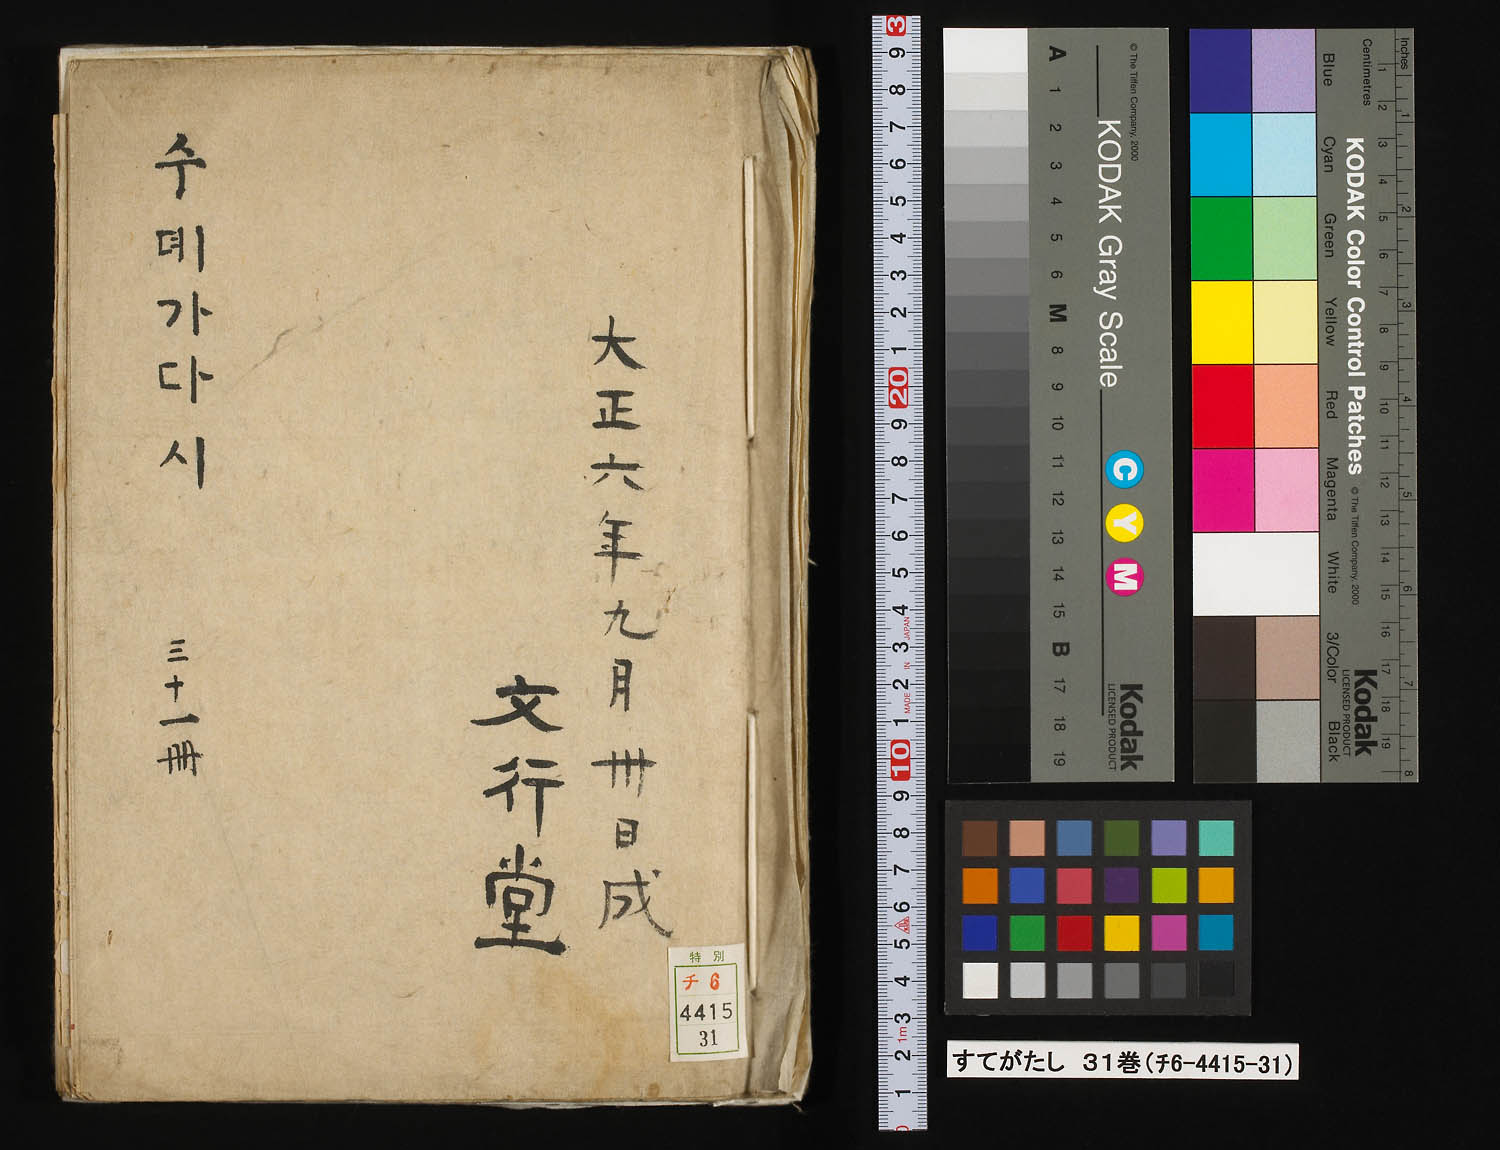 大正六年九月卅日成
文行堂
수데가다시
三十一冊
特別
チ6
4415
31
© The Tiffen Company, 2000
KODAK Gray Scale
C Y M
Kodak
LICENSED PRODUCT
A 1 2 3 4 5 6 M 8 9 10 11 12 13 14 15 B 17 18 19
Inches
Centimetres
KODAK Color Control Patches
© The Tiffen Company, 2000
Kodak
LICENSED PRODUCT
Blue Cyan Green Yellow Red Magenta White 3/Color Black
1 2 3 4 5 6 7 8
1 2 3 4 5 6 7 8 9 10 11 12 13 14 15 16 17 18 19
1 2 3 4 5 6 7 8 9 10 1 2 3 4 5 6 7 8 9 20 1 2 3 4 5 6 7 8 9 3
1m
MADE IN JAPAN
すてがたし 31巻(チ6-4415-31)